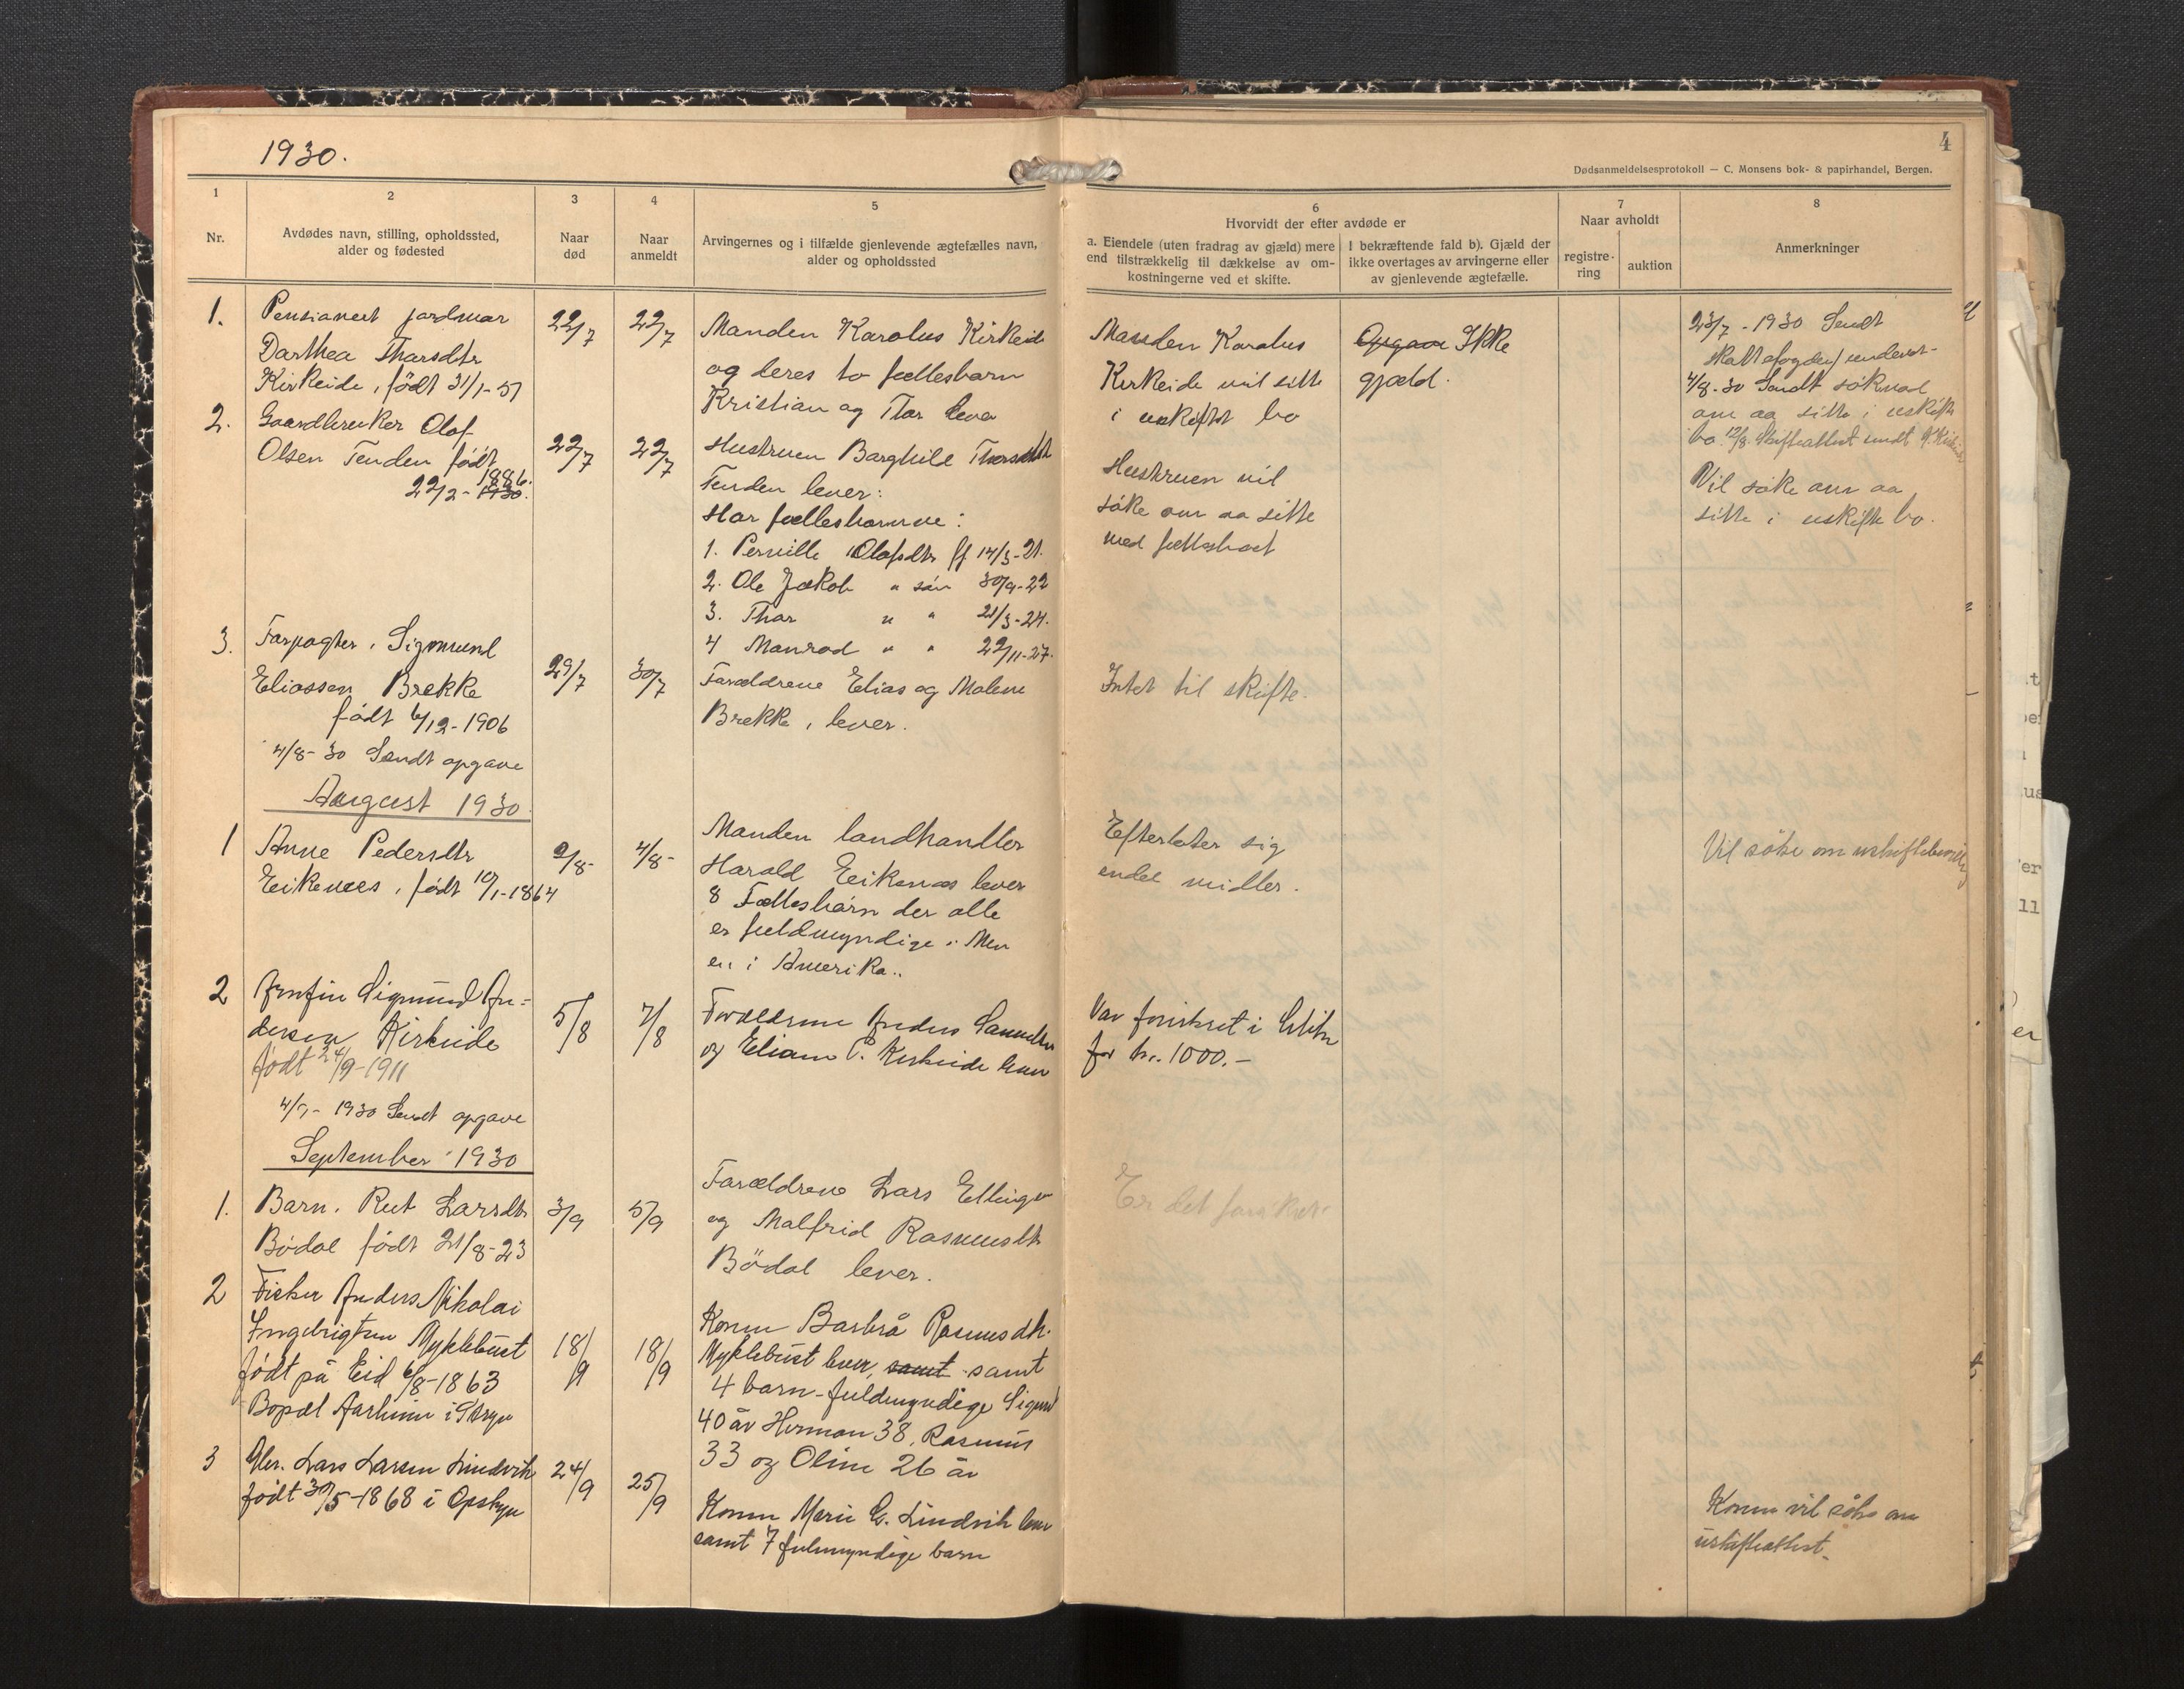 1930.
4
Dødsanmeldelsesprotokoll — C. Monsens bok- & papirhandel, Bergen.
1
Nr.
2
Avdødes navn, stilling, opholdssted,
alder og fødested
3
Naar
død
4
Naar
anmeldt
5
Arvingernes og i tilfælde gjenlevende ægtefælles navn,
alder og opholdssted
6
Hvorvidt der efter avdøde er
a. Eiendele (uten fradrag av gjæld) mere
end tilstrækkelig til dækkelse av om-
kostningerne ved et skifte.
I bekræftende fald b). Gjæld der
ikke overtages av arvingerne eller
av gjenlevende ægtefælle.
7
Naar avholdt
registre-
ring
auktion
8
Anmerkninger
1.
Pensioneret jordmor
Darthea Thorsdtr
Kirkeide, født 31/1-51
22/7
22/7
Manden Karolus Kirkeide
og deres to fællesbarn
Kristian og Thor lever
Manden Karolus
Kirkeide vil sitte
i uskiftet bo
Opgave Ikke
gjæld.
23/7 - 1930 Sendt
4/8-30 Sendt søknad
om aa sitte i uskifte
bo 12/8. Skifteattest sendt
2.
Gaardbruker Olof
Olsen Tenden født
1886.
22/2 - 1930.
22/7
22/7
Hustruen Borghild Thorsdtr
Tenden lever:
Har fællesbarnene:
1. Pernille Olofsdtr ff 14/3-21.
2. Ole Jakob " søn 30/9-22
3. Thor " " 21/3-24.
4 Monrad " " 22/11-27.
Hustruen vil
søke om aa sitte
med fællesboet
Vil søke om aa
sitte i uskifte bo.
3.
Forpagter, Sigmund
Eliassen Brekke
født 6/12-1906
29/7
30/7
Forældrene Elias og Malene
Brekke, lever.
Intet til skifte.
4/8-30 Sendt opgave
August 1930.
1
Anne Pedersdtr
Eikenes, født 10/1-1864
2/8-
4/8-
Manden landhandler
Harald Eikenæs lever
8 Fællesbarn der alle
er fuldmyndige. Men
en i Amerika..
Efterlater sig
endel midler.
Vil søke om
2
Arnfin Sigmund An=
dersen Kirkeide
født 24/9-1911
5/8
7/8
Forældrene Anders Samuelsen
og Eliane P. Kirkeide lever
Var forsikret i
for kr. 1000.-
4/9- 1930 Sendt opgave
September 1930
1.
Barn. Rut Larsdtr
Bödal født 21/8-23
3/9
5/9
Forældrene Lars Ellingsen
og Malfrid Rasmusdtr
Bödal lever.
Er det forsikret
2
Fisker Anders Nikolai
Ingebrigtsen Myklebust
født på Eid 6/8-1863
Bopæl Aarheim i Stryn
18/9
18/9
Konen Barbrå Rasmusdtr.
Myklebust lever, samt samt
4 barn - fuldmyndige Sigurd
40 år Herman 38, Rasmus
33 og Oline 26 år
3
Gbr. Lars Larsen Lindvik
født 30/5-1868 i Opstryn
24/9
25/9
Konen Marie E. Lindvik lever
samt 7 fulmyndige barn
Konen vil søke om
uskifteattest.